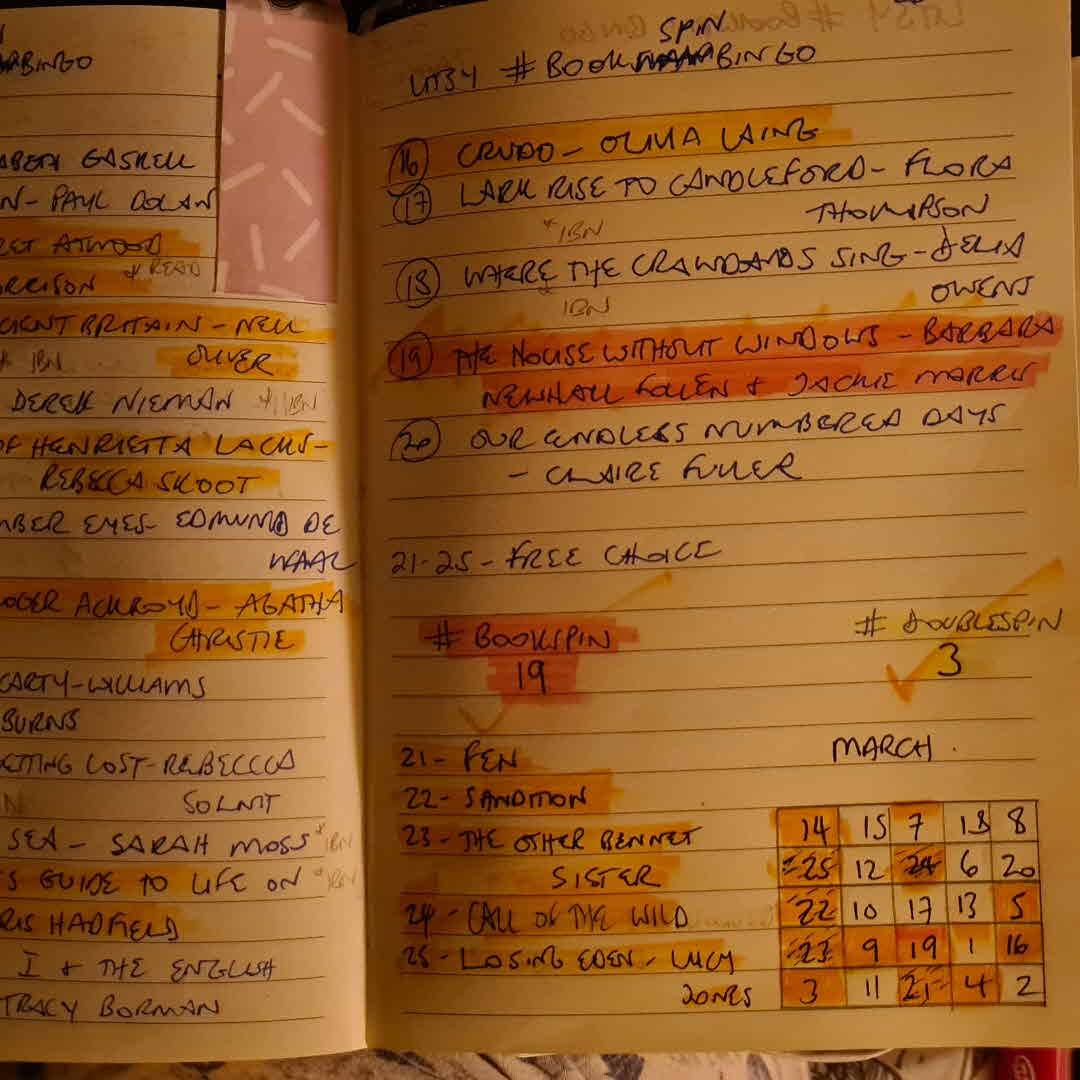 BINGO
GASKELL
N- PAUL DOLAN
RET ATWOOD
* READ
ORRISON
CIENT BRITAIN - NEIL
IBN OLIVER
DEREK NIEMAN * IBN
OF HENRIETTA LACKS-
REBECCA SKOOT
MBER EYES- EDMUND DE
WAAL
OGER ACKROYD- AGATHA
CHRISTIE
CARTY-WILLIAMS
BURNS
ETTING LOST-REBECCCA
SOLNIT
SEA- SARAH MOSS * IBN
'S GUIDE TO LIFE ON * IBN
RIS HADFIELD
I + THE ENGLISH
TRACY BORMAN
SPIN
#BOOK BINGO
16 CRUDO- OLIVIA LAING
17 LARK RISE TO CANDLEFORD- FLORA
* IBN THOMPSON
18 WHERE THE CRAWDADS SING- DELIA
* IBN OWENS
19 THE HOUSE WITHOUT WINDOWS - BARBARA
NEWHALL FOLLEN + JACKIE MORRIS
20 OUR ENDLESS NUMBERED DAYS
- CLAIRE FULLER
21-25 - FREE CHOICE
# BOOKSPIN # DOUBLESPIN
19 3
21 - FEN MARCH.
22 - SANDITION
23 - THE OTHER BENNET
SISTER
24 - CALL OF THE WILD
25 - LOSING EDEN - LUCY
JONES
14 15 7 18 8
25 12 24 6 20
22 10 17 13 5
23 9 19 1 16
3 11 21 4 2